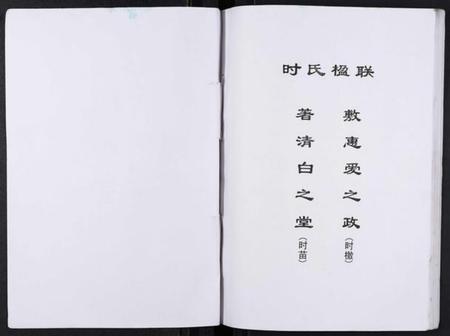 时氏楹联
敷惠爱之政（时檄）
著清白之堂（时苗）